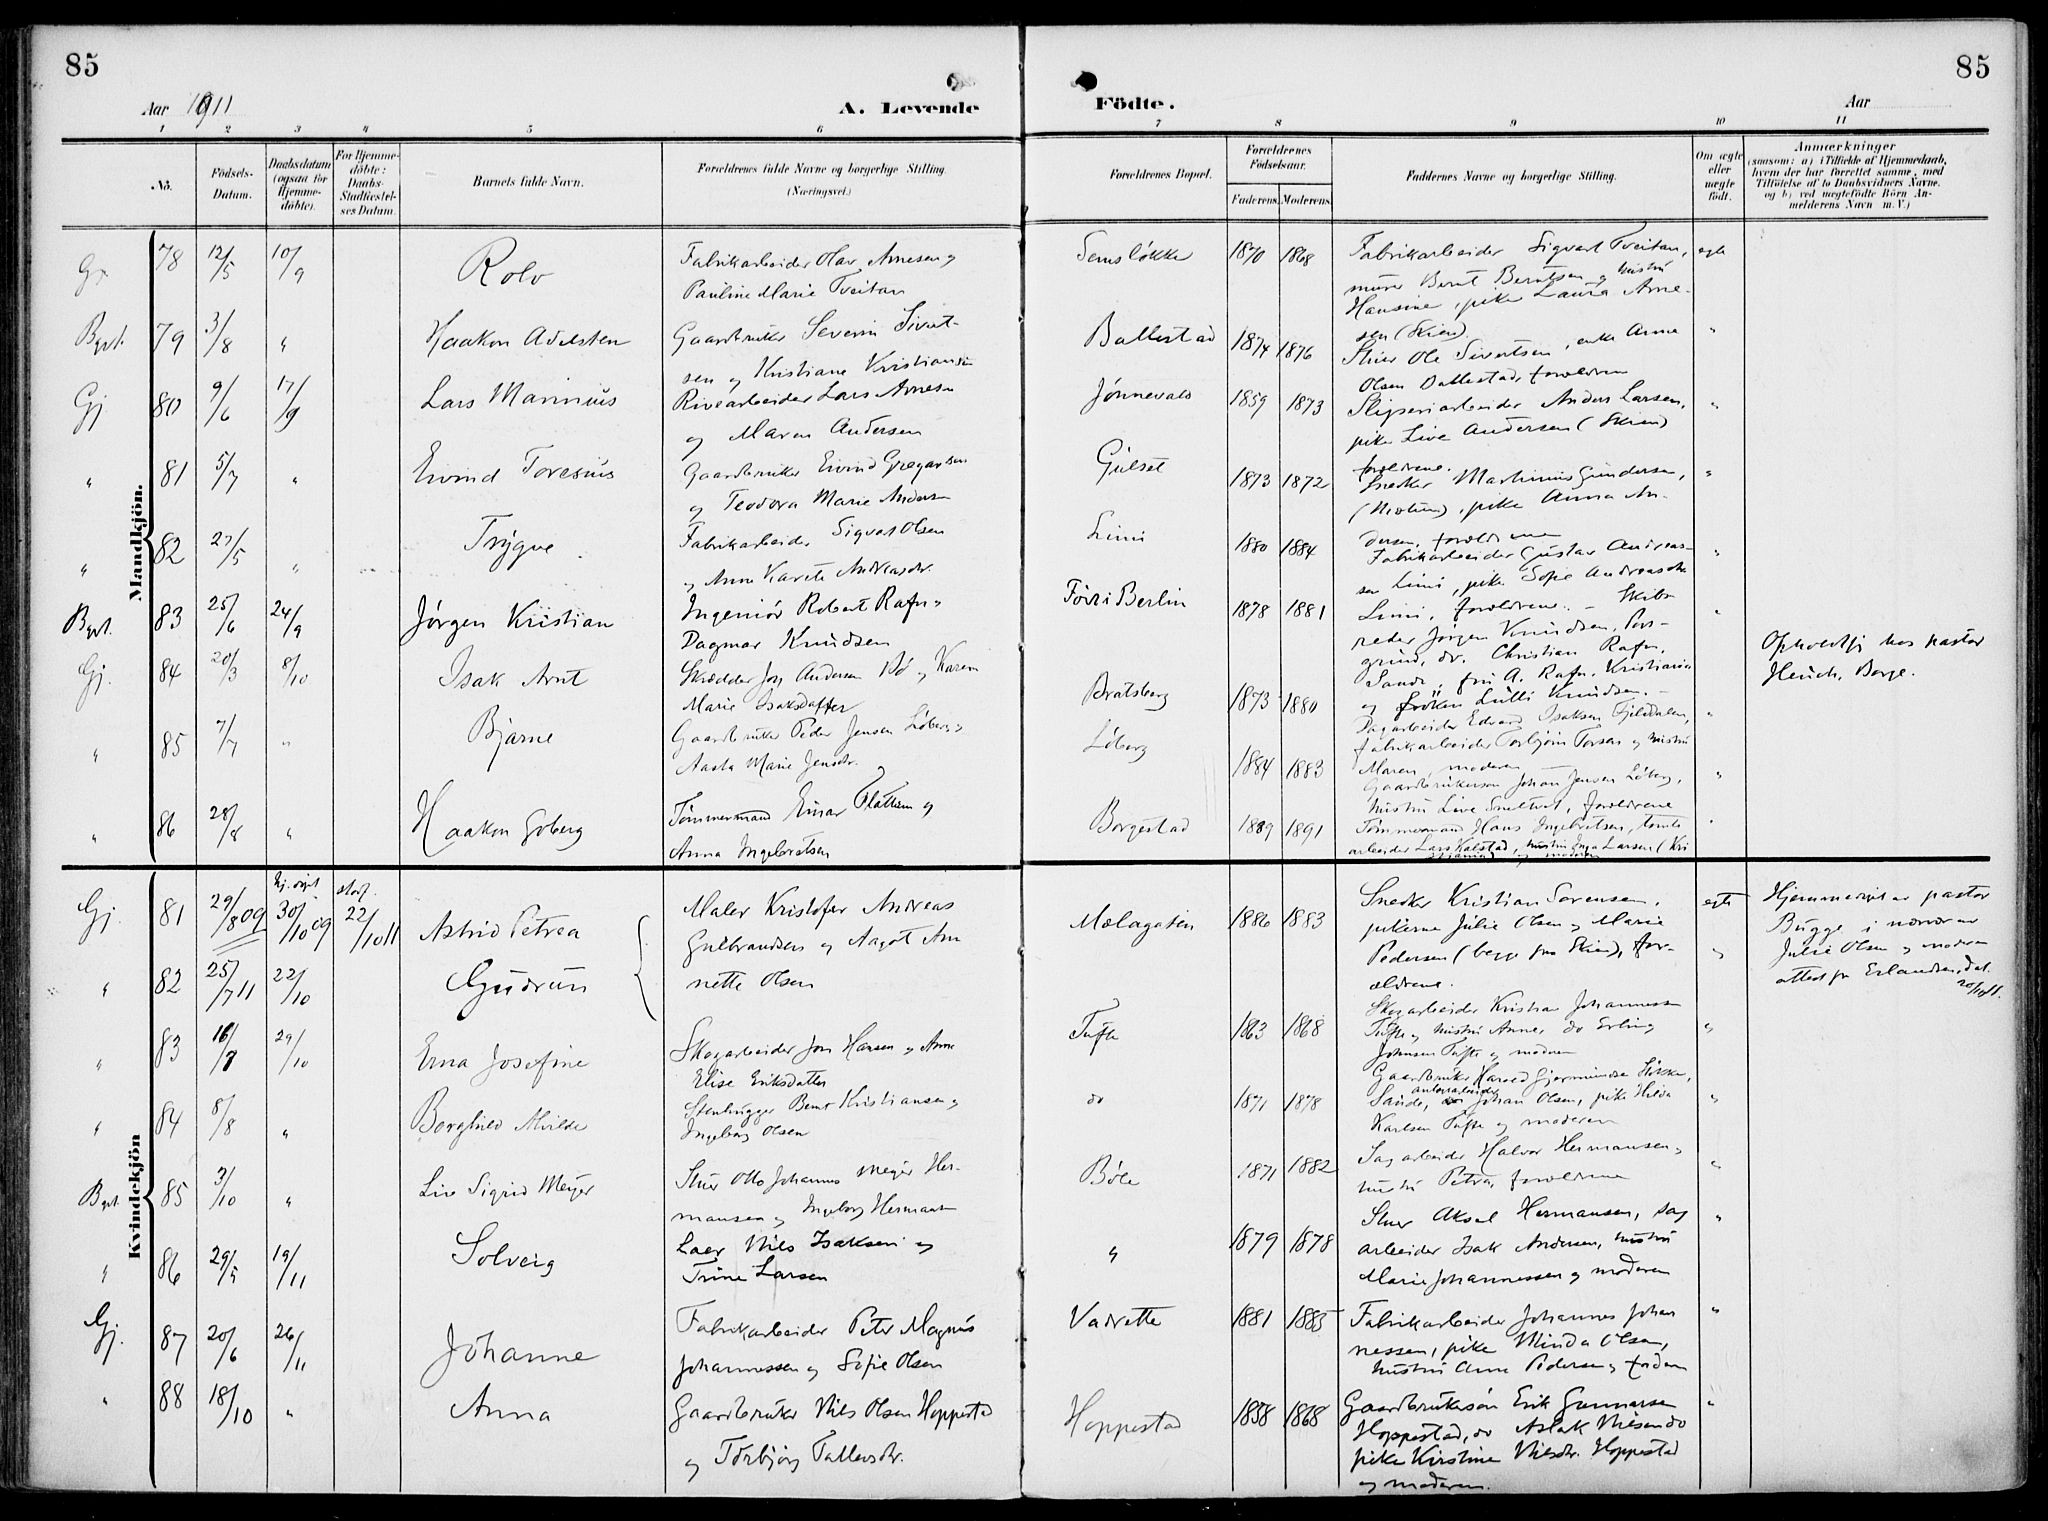 85
85
Aar 1911
A. Levende
Födte.
Aar
1 2 3 4 5 6 7 8 9 10 11
No.
Födsels-
Datum.
Daabsdatum
(ogsaa for
Hjemme-
döbte).
For Hjemme-
döbte:
Daabs-
Stadfæstel-
ses Datum.
Barnets fulde Navn.
Forældrenes fulde Navne og borgerlige Stilling.
(Næringsvei.)
Forældrenes Bopæl.
Forældrenes
Födselsaar.
Faderens. Moderens.
Faddernes Navne og borgerlige Stilling.
Om ægte
eller
uægte
födt.
Anmærkninger
(saasom: a) i Tilfælde af Hjemmedaab,
hvem der har forrettet samme, med
Tilföielse af to Daabsvidners Navne.
og b) ved uægtefödte Börn An-
melderens Navn m. V.)
Mandkjön.
78 12/5 10/9
Rolv
Fabrikarbeider Olav Arnesen og
Pauline Marie Tveitan
Semsløkke
1870 1868
Fabrikarbeider Sigvart Tveitan,
murer Bernt Berntsen og hustru
Hansine, pike Laura Arne-
sen (Skien).
egte
Bgst. 79 3/8 "
Haakon Adelsten
Gaardbruker Severin Sivert-
sen og Kristiane Kristiansen
Ballestad
1874 1876
Stuer Ole Sivertsen, enke Anne
Olsen Ballestad, forældrene
"
Gj 80 9/6 17/9
Lars Marinius
Rivearbeider Lars Arnesen
og Maren Andersen
Jønnevald
1859 1873
Sliperiarbeider Anders Larsen,
pike Live Andersen (Skien)
forældrene.
"
" 81 5/7 "
Eivind Toresius
Gaardbruker Eivind Gregarsen
og Teodora Marie Andersen
Gulset
1873 1872
Snekker Martinius Gundersen,
pike Anna An-
dersen, forældrene
"
" 82 27/5 "
Trygve
Fabrikarbeider Sigvat Olsen
og Anne Karete Andreasdtr.
Limi
1880 1884
Fabrikarbeider Gustav Andreas-
sen Limi, pike Sofie Andreasdtr
Limi, forældrene. –
"
Bgst. 83 25/6 24/9
Jørgen Kristian
Ingeniør Robert Rafn og
Dagmar Knudsen
Förr i Berlin
1878 1881
Skibs-
reder Jørgen Knudsen, Pors-
grund, dr. Christian Rafn,
Sande, fru A. Rafn, Kristiania
og frøken Lulli Knudsen. –
"
Opholdt sj hos pastor
Heuch, Borge.
Gj. 84 20/3 8/10
Isak Arnt
Skrædder Jørg Andersen Bø og Karen
Marie Isaksdatter
Bratsberg
1873 1880
Dagarbeider Edvard Isaksen Fjelddalen,
fabrikarbeider Torbjørn Torsen og hustru
Maren, moderen
"
" 85 7/7 "
Bjarne
Gaardbruker Peder Jensen Løberg og
Aasta Marie Jensdtr.
Løberg
1884 1883
Gaardbrukersøn Johan Jensen Løberg,
hustru Live Smeltvet, forældrene
"
" 86 28/8 "
Haakon Goberg
Tømmermand Einar Flåttum og
Anna Ingebretsen
Borgestad
1889 1891
Tømmermand Hans Ingebretsen, tomte
arbeider Lars Kalstad, hustru Inga Larsen (Kri
stiania) og moderen
"
Kvindekjön
Gj. 81 29/8 09 30/10 09 22/10 11
Astrid Petrea
Maler Kristofer Andreas
Gulbrandsen og Aagot An
nette Olsen
Mælagaten
1886 1883
Snekker Kristian Sørensen,
pikerne Julie Olsen og Marie
Pedersen (begge fra Skien), for-
ældrene.
egte
Hjemmedøpt av pastor
Bugge i nærvær av
Julie Olsen og moderen
attest fra Erlandsen, dat.
20/10 11.
" 82 25/7 11 22/10
Gudrun
"
" 83 16/7 29/10
Erna Josefine
Skogarbeider Jon Hansen og Anne
Elise Eriksdatter
Tufte
1863 1868
Skogarbeider Kristian Johannessen
Tufte og hustru Anne, do Erling
Johnsen Tufte og moderen
"
" 84 8/8 "
Borghild Alvilde
Stenhugger Bernt Kristiansen og
Ingeborg Olsen
do
1871 1878
Gaardbruker Harald Gjermundsen Løkke,
Sande, anlægsarbeider Johan Olsen, pike Hilda
Karlsen Tufte og moderen
"
Bgst. 85 3/10 "
Live Sigrid Meyer
Stuer Otto Johannes Meyer Her-
mansen og Ingeborg Hermansen
Bøle
1871 1882
Sagarbeider Halvor Hermansen og
hustru Petra, forældrene
"
" 86 29/5 19/11
Solveig
Laer Nils Isaksen og
Trine Larsen
"
1879 1878
Stuer Aksel Hermansen, sag
arbeider Isak Andersen, hustru
Marie Johannessen og moderen
"
Gj. 87 20/6 26/11
Johanne
Fabrikarbeider Peter Magnus
Johannessen og Sofie Olsen
Vadrette
1881 1885
Fabrikarbeider Johannes Johan
nessen, pike Minda Olsen,
hustru Anne Pedersen og faderen
"
" 88 18/10 "
Anna
Gaardbruker Nils Olsen Hoppestad
og Torbjørg Tallevsdtr.
Hoppestad
1858 1868
Gaardbrukersøn Erik Gunnarsen
Hoppestad, do Aslak Nilsen do
pike Kirstine Nilsdtr. Hoppestad
og moderen.
"